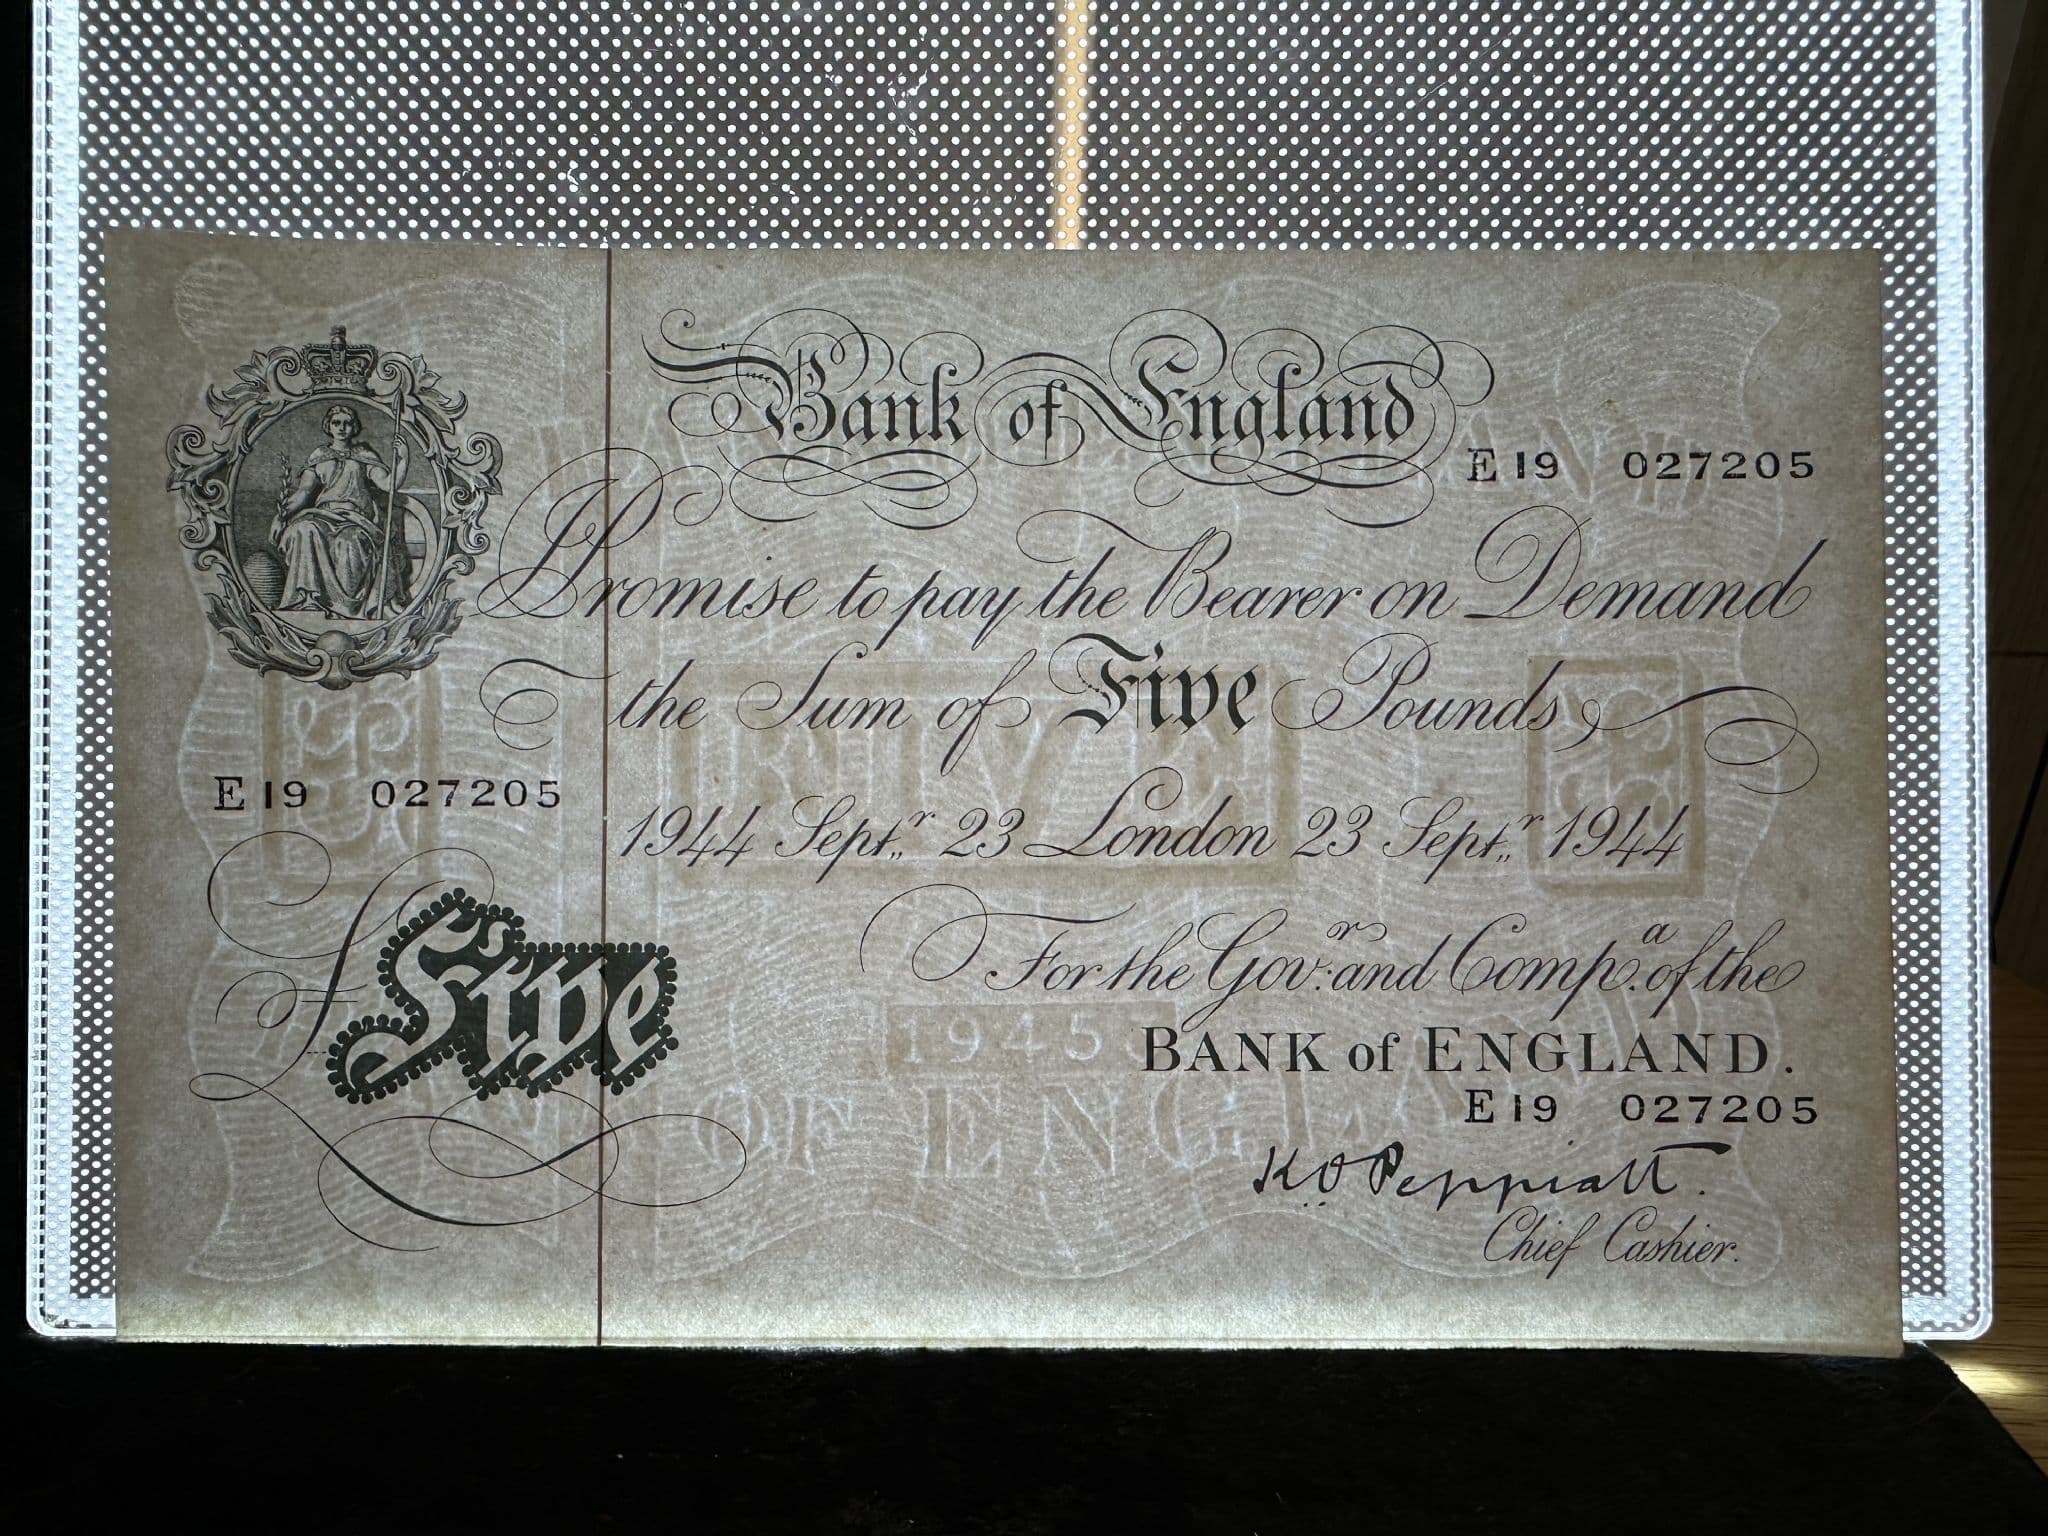 Bank of England
E19 027205
I Promise to pay the Bearer on Demand
the Sum of Five Pounds
E19 027205
1944 Sept.r 23 London 23 Sept.r 1944
£ Five
For the Gov.r and Comp.a of the
1945
BANK of ENGLAND.
E19 027205
OF ENGLAND
K.O. Peppiatt.
Chief Cashier.
FIVE